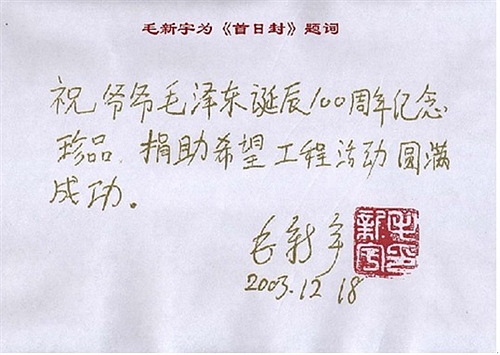 毛新宇为《首日封》题词
祝爷爷毛泽东诞辰100周年纪念
珍品捐助希望工程活动圆满
成功。
毛新宇
毛新宇印
2003.12.18